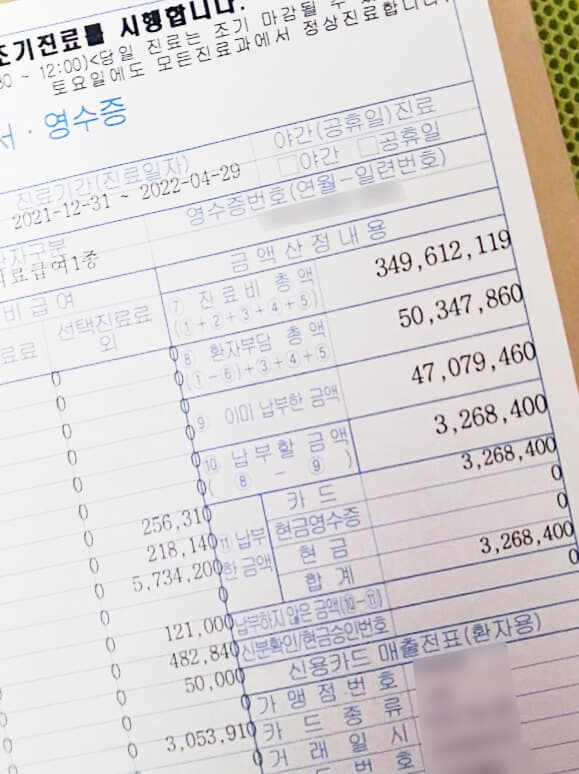 조기진료를 시행합니다.
30 ~ 12:00)<당일 진료는 조기 마감될 수
토요일에도 모든진료과에서 정상진료합니다.
서 · 영수증
진료기간(진료일자)
야간(공휴일)진료
2021-12-31 ~ 2022-04-29
□야간 □공휴일
영수증번호(연월-일련번호)
환자구분
의료급여1종
금액산정내용
비급여
⑦ 진료비 총액
(①+②+③+④+⑤)
349,612,119
진료료
선택진료료
외
⑧ 환자부담 총액
(①-⑥)+③+④+⑤
50,347,860
0 0
⑨ 이미 납부한 금액
47,079,460
0 0
⑩ 납부할 금액
( ⑧ - ⑨ )
3,268,400
0 0
⑪ 납부
한 금액
카드
3,268,400
256,310 0
현금영수증
0
218,140 0
현금
0
5,734,200 0
합계
3,268,400
납부하지 않은 금액(⑩-⑪)
0
0 121,000 0
신분확인/현금승인번호
0 482,840 0
신용카드 매출전표(환자용)
0 50,000 0
가맹점번호
카드종류
0 3,053,910 0
거래일시
드번호